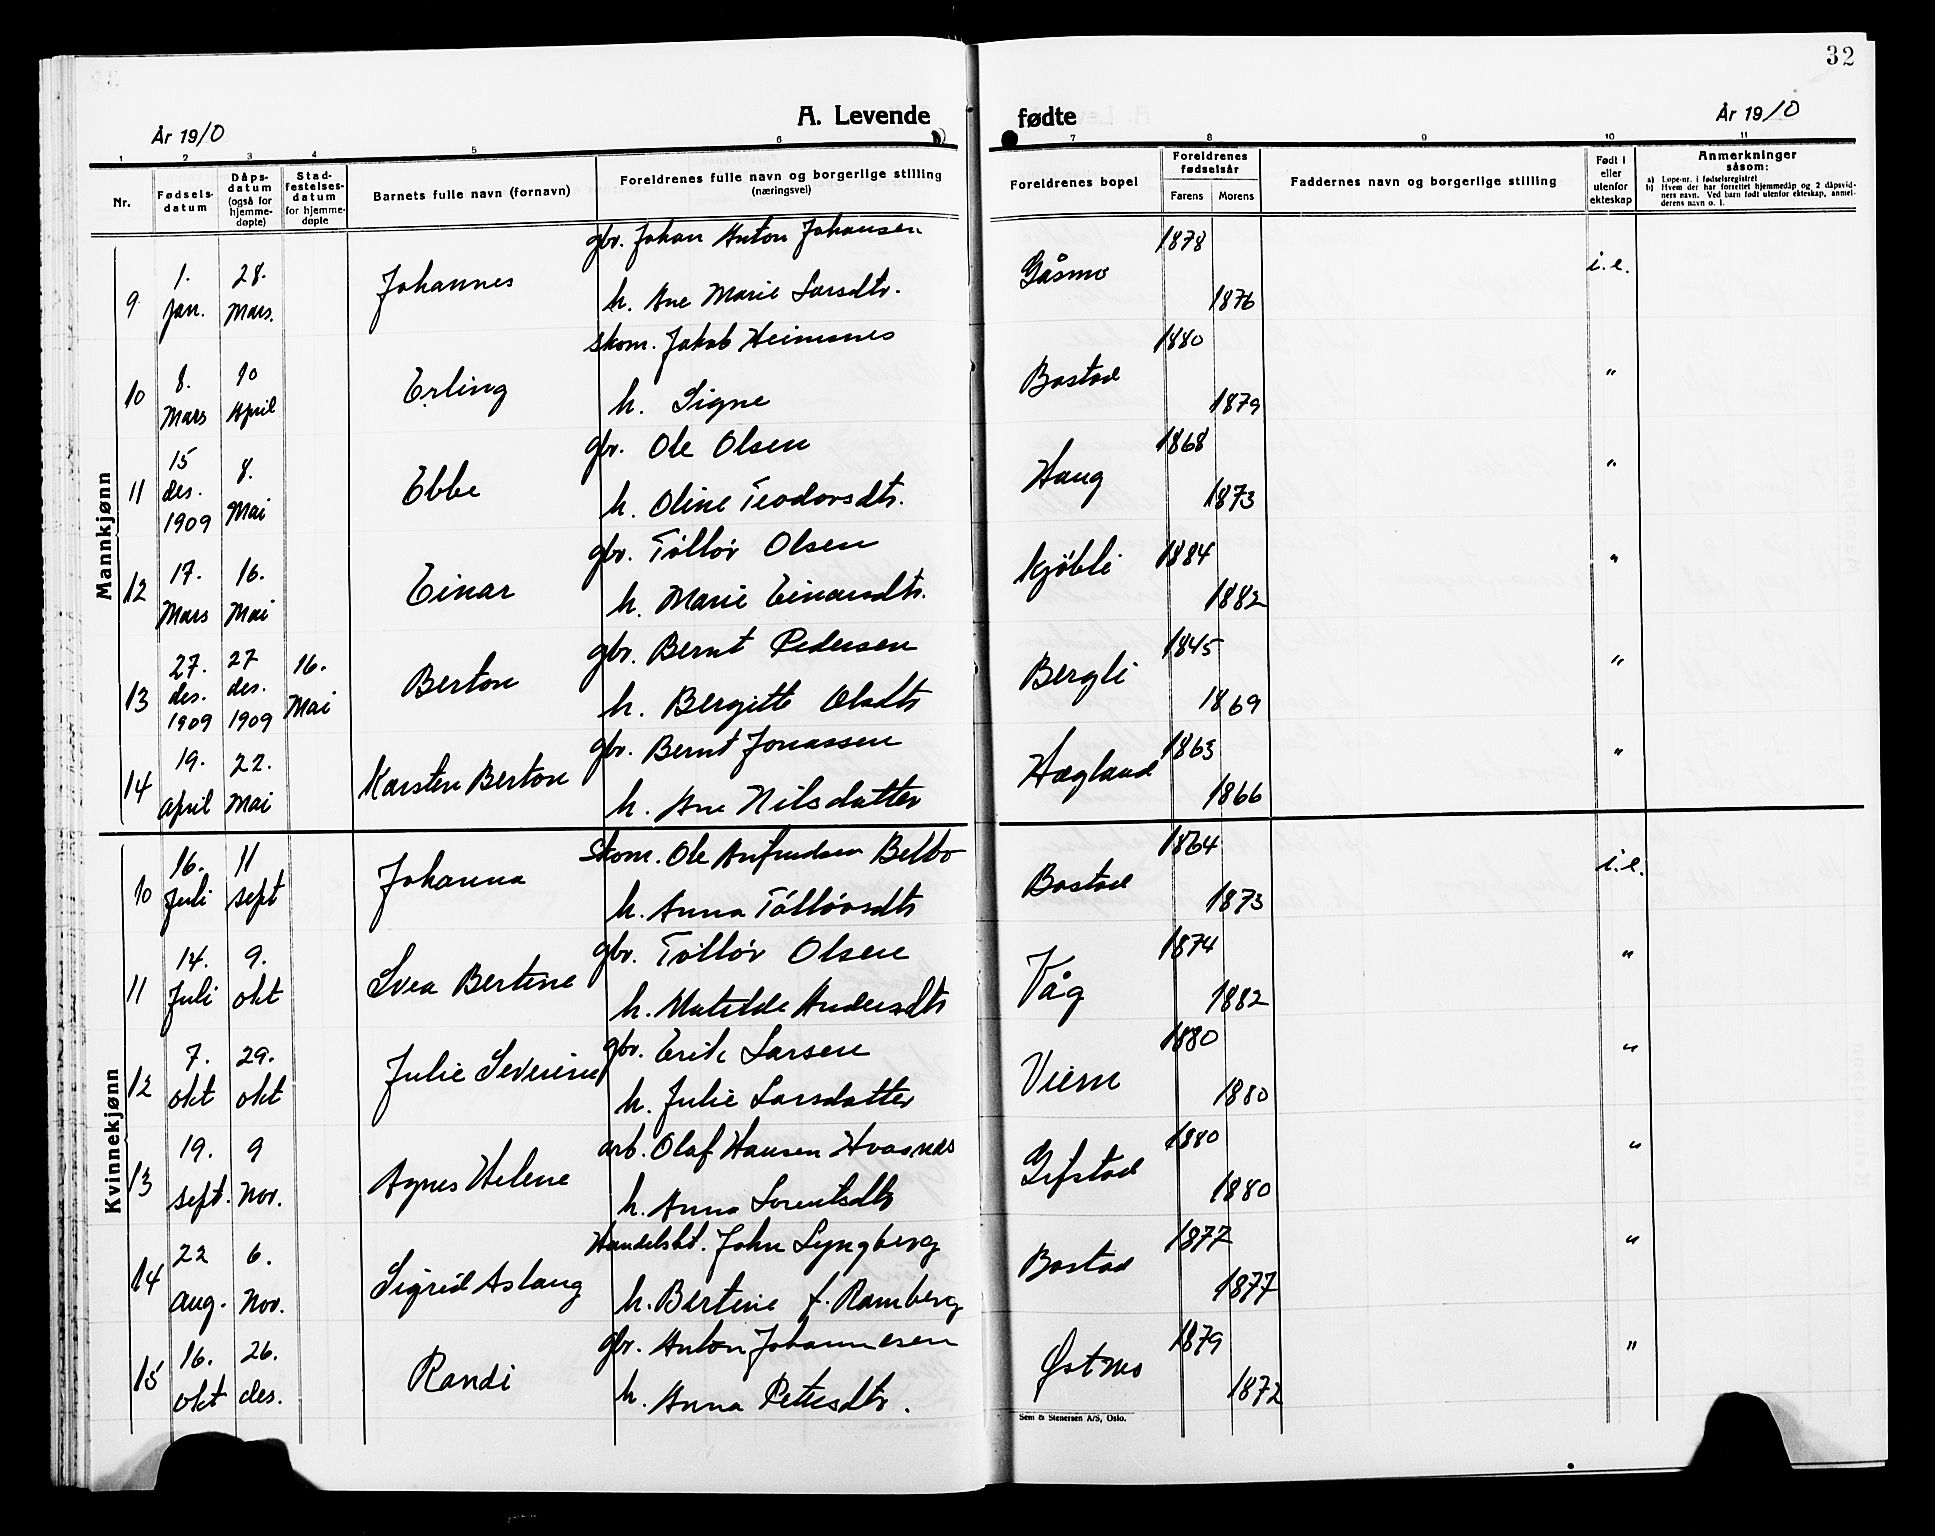 32
A. Levende fødte
År 1910
År 1910
1 2 3 4 5 6 7 8 9 10 11
Nr. Fødsels-datum Dåps-datum (også for hjemme-døpte) Stad-festelses-datum for hjemme-døpte Barnets fulle navn (fornavn) Foreldrenes fulle navn og borgerlige stilling (næringsvei) Foreldrenes bopel Foreldrenes fødselsår Farens Morens Faddernes navn og borgerlige stilling Født i eller utenfor ekteskap Anmerkninger såsom:
a) Løpe-nr. i fødselsregistret
b) Hvem der har forrettet hjemmedåp og 2 dåpsvidners navn. Ved barn født utenfor ekteskap, anmelderens navn o. l.
Mannkjønn
9 1. Jan. 28. Mars. Johannes gbr. Johan Anton Johansen h. Ane Marie Larsdtr. Gåsmo 1878 1876 i.e.
10 8. Mars 10 April Erling skom. Jakob Heimsnes h. Signe Bostad 1880 1879 "
11 15 des. 1909 8. Mai Ebbe gbr. Ole Olsen h. Oline Teodorsdtr. Haug 1868 1873 "
12 17. Mars 16. Mai Einar gbr. Tollöv Olsen h. Marie Einarsdtr. Kjöbli 1884 1882 "
13 27. des. 1909 27 des. 1909 16. Mai Berton gbr. Bernt Pedersen h. Bergitte Olsdtr Bergli 1845 1869 "
14 19. April 22. Mai Karsten Berton gbr. Bernt Jonassen h. Ane Nilsdatter Hægland 1863 1866 "
Kvinnekjønn
10 16. Juli 11 sept Johanna Skom. Ole Arnfindsen Belbo h. Anna Tollövsdtr Bostad 1864 1873 i.e.
11 14. Juli 9. okt Svea Bertine gbr. Tollöv Olsen h. Matilde Andersdtr Våg 1874 1882 "
12 7. okt 29. okt Julie Severine gbr. Erik Larsen h. Julie Larsdatter Viem 1880 1880 "
13 19. sept. 9 Nov. Agnes Helene arb. Olaf Hansen Hvasnes h. Anna Lorentsdtr Gefstad 1880 1880 "
14 22 Aug. 6. Nov. Sigrid Aslaug Handelsbt. John Lyngberg h. Bertine f. Ramberg Bostad 1877 1877 "
15 16. okt 26. des. Randi gbr. Anton Johannesen h. Anna Petersdtr. Östmo 1879 1872 "
Sem & Stenersen A/S, Oslo.